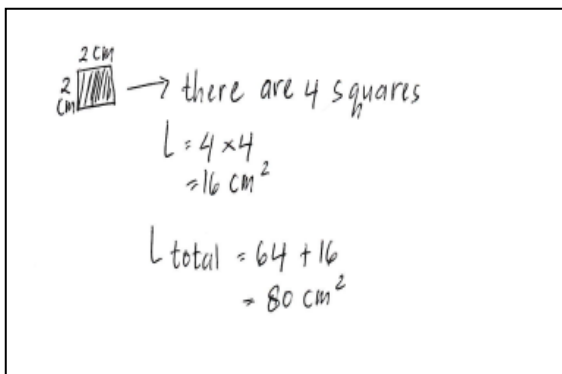 2 cm
2 cm → there are 4 squares
L = 4 × 4
= 16 cm²
L total = 64 + 16
= 80 cm²